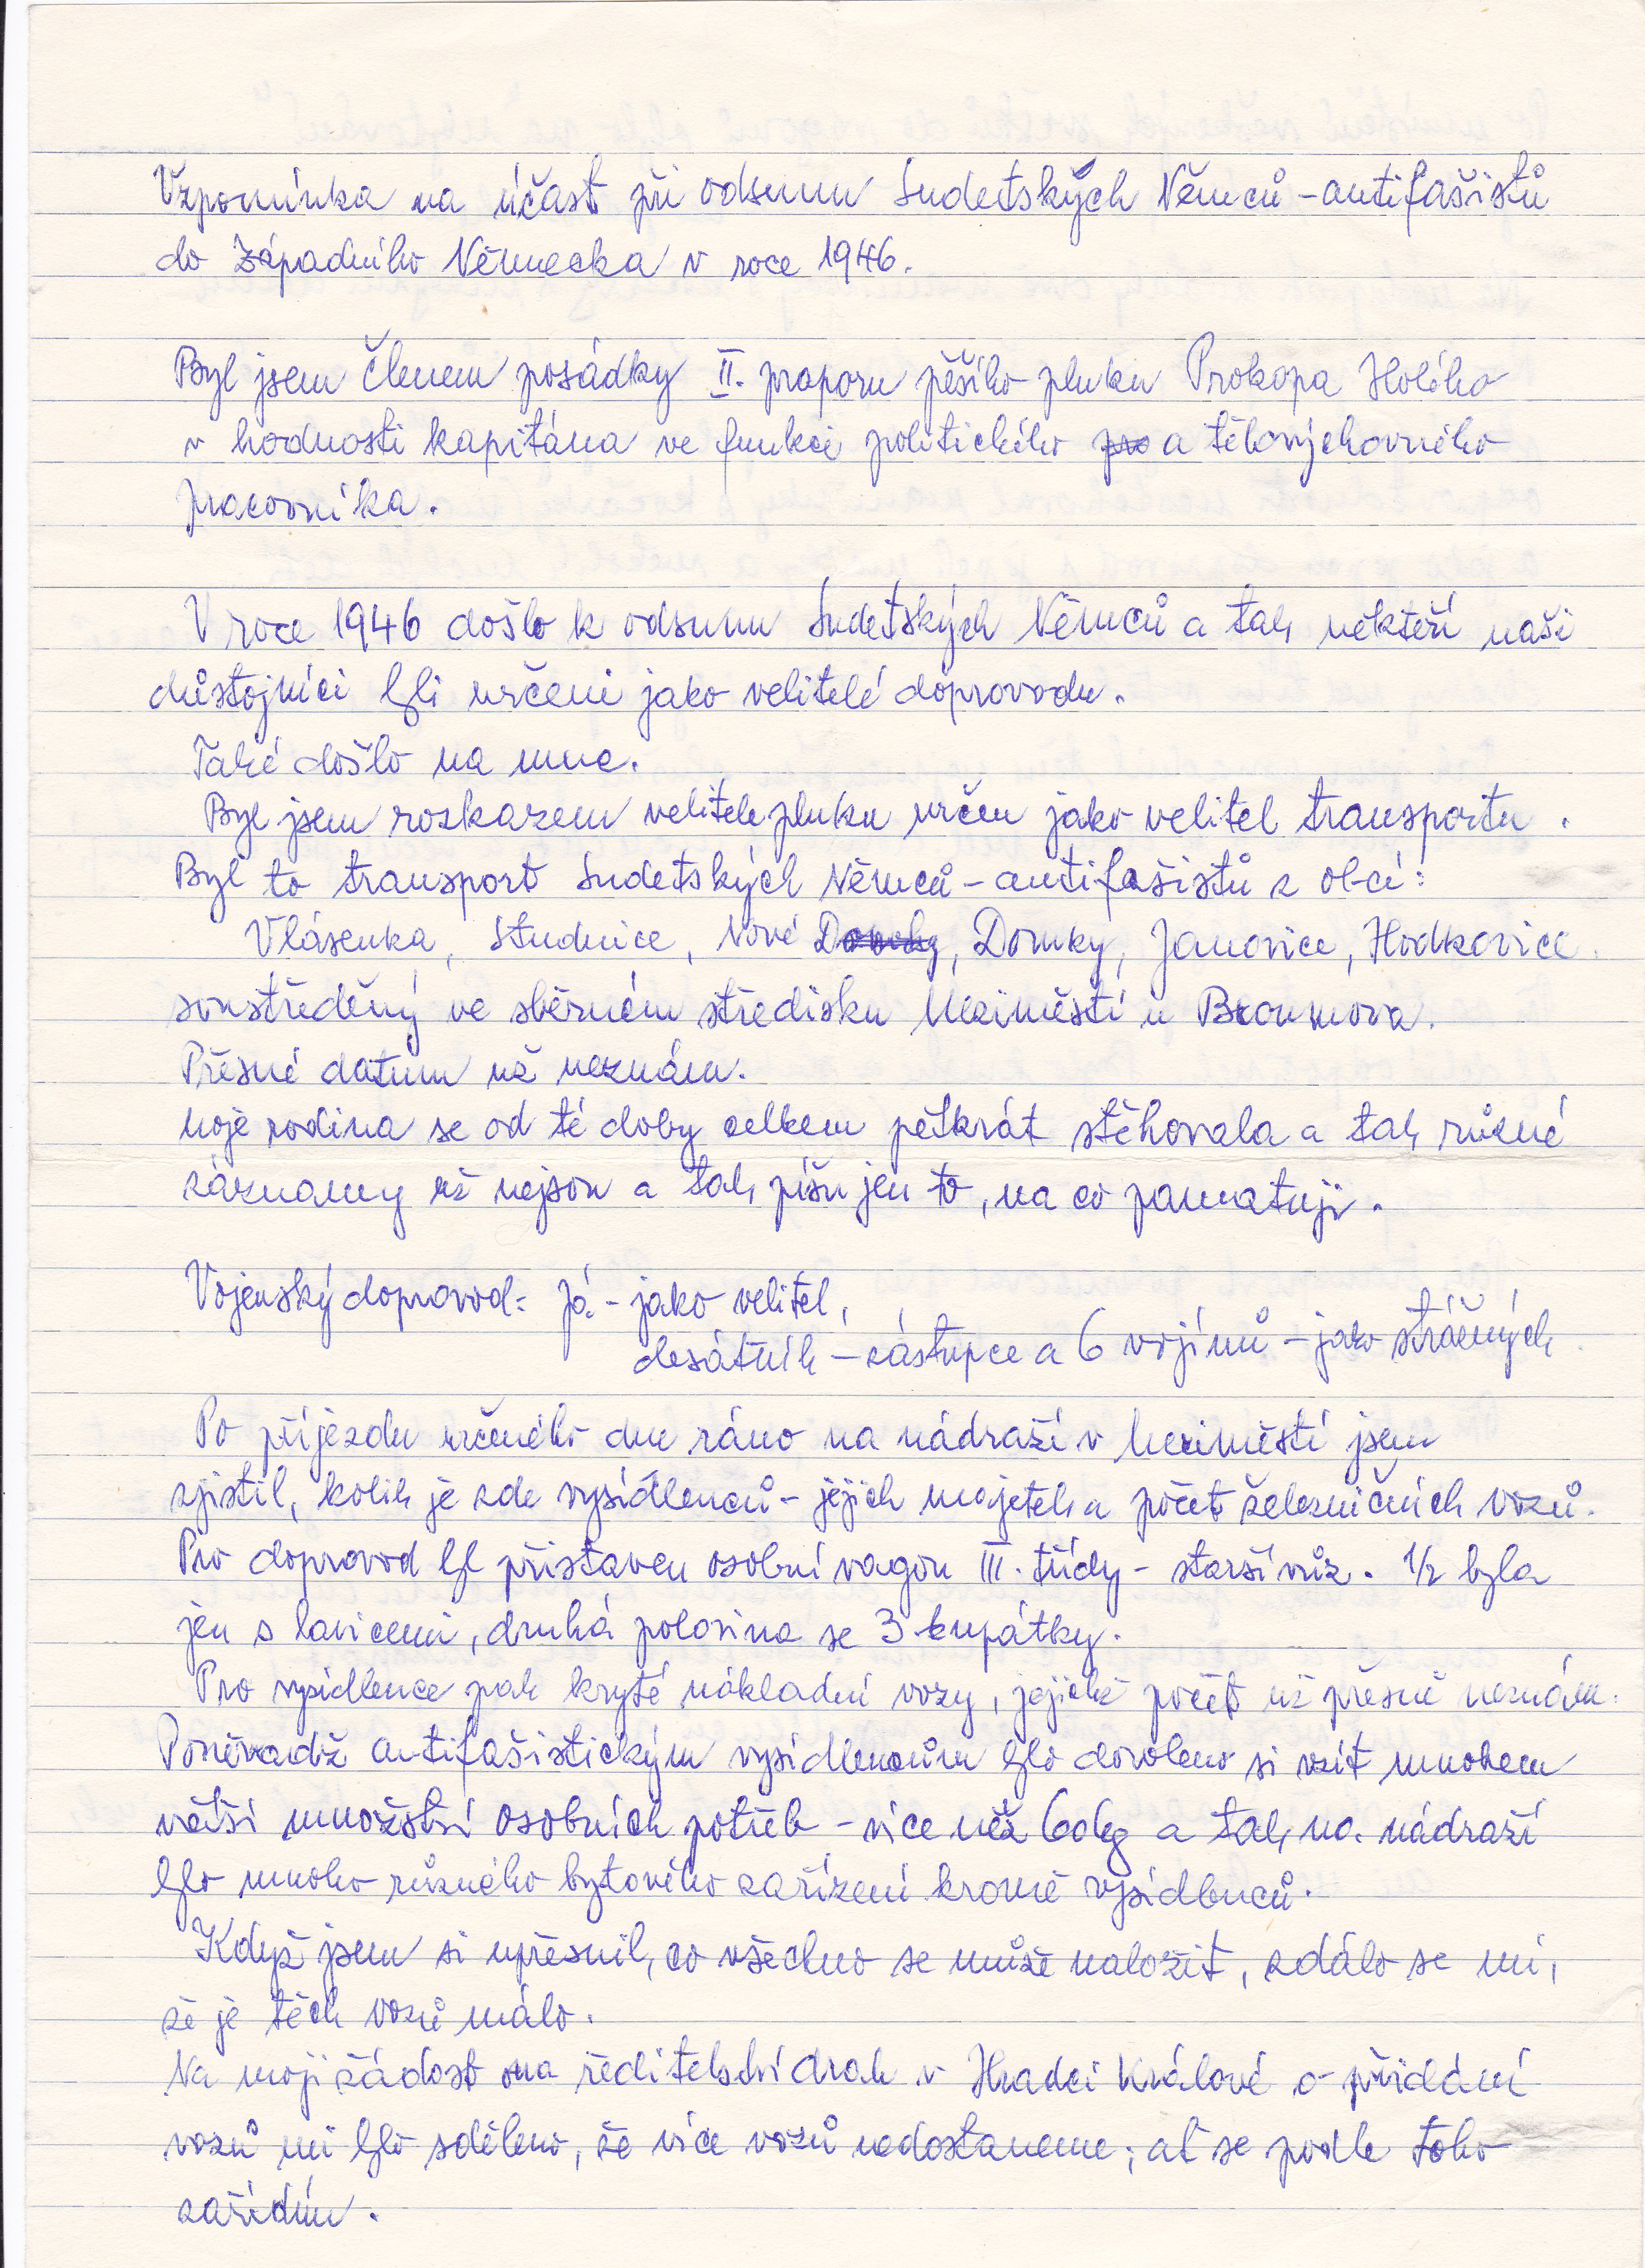 Vzpomínka na účast při odsunu Sudetských Němců - antifašistů
do Západního Německa v roce 1946.
Byl jsem členem posádky II. praporu pěšího pluku Prokopa Holého
v hodnosti kapitána ve funkci politického pro a tělovýchovného
pracovníka.
V roce 1946 došlo k odsunu Sudetských Němců a tak někteří naši
důstojníci byli určeni jako velitelé doprovodu.
Také došlo na mne.
Byl jsem rozkazem velitele pluku určen jako velitel transportu.
Byl to transport Sudetských Němců - antifašistů z obcí:
Vlásenka, Studnice, Nové Domky, Janovice, Hodkovice
soustředěný ve sběrném středisku Meziměstí u Broumova.
Přesné datum už neznám.
Moje rodina se od té doby celkem pětkrát stěhovala a tak různé
záznamy už nejsou a tak píšu jen to, na co pamatuji.
Vojenský doprovod: Já - jako velitel,
desátník - zástupce a 6 vojínů - jako strážných
Po příjezdu určeného dne ráno na nádraží v Meziměstí jsem
zjistil, kolik je zde vysídlenců - jejich majetek a počet železničních vozů.
Pro doprovod byl přistaven osobní vagon III. třídy - starší vůz. 1/2 byla
jen s lavicemi, druhá polovina se 3 kupátky.
Pro vysídlence pak kryté nákladní vozy, jejichž počet už přesně neznám.
Poněvadž antifašistickým vysídlencům bylo dovoleno si vzít mnohem
větší množství osobních potřeb - více něž 60kg a tak na nádraží
bylo mnoho různého bytového zařízení kromě vysídlenců.
Když jsem si upřesnil, co všechno se může naložit, zdálo se mi,
že je těch vozů málo.
Na moji žádost na ředitelství drah v Hradci Králové o přidání
vozů mi bylo sděleno, že více vozů nedostaneme; ať se podle toho
zařídím.